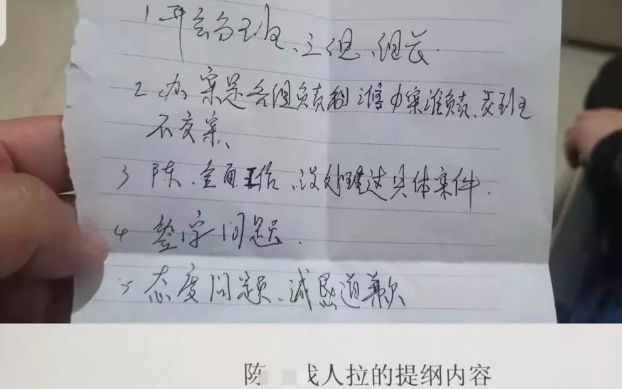 1 开会
2 办案是各组负责制 谁办案谁负责、交班
不交案、
3 陈、全面工作、没处理过具体案件.
4 签字问题.
5 态度问题、诚恳道歉
陈 找人拉的提纲内容